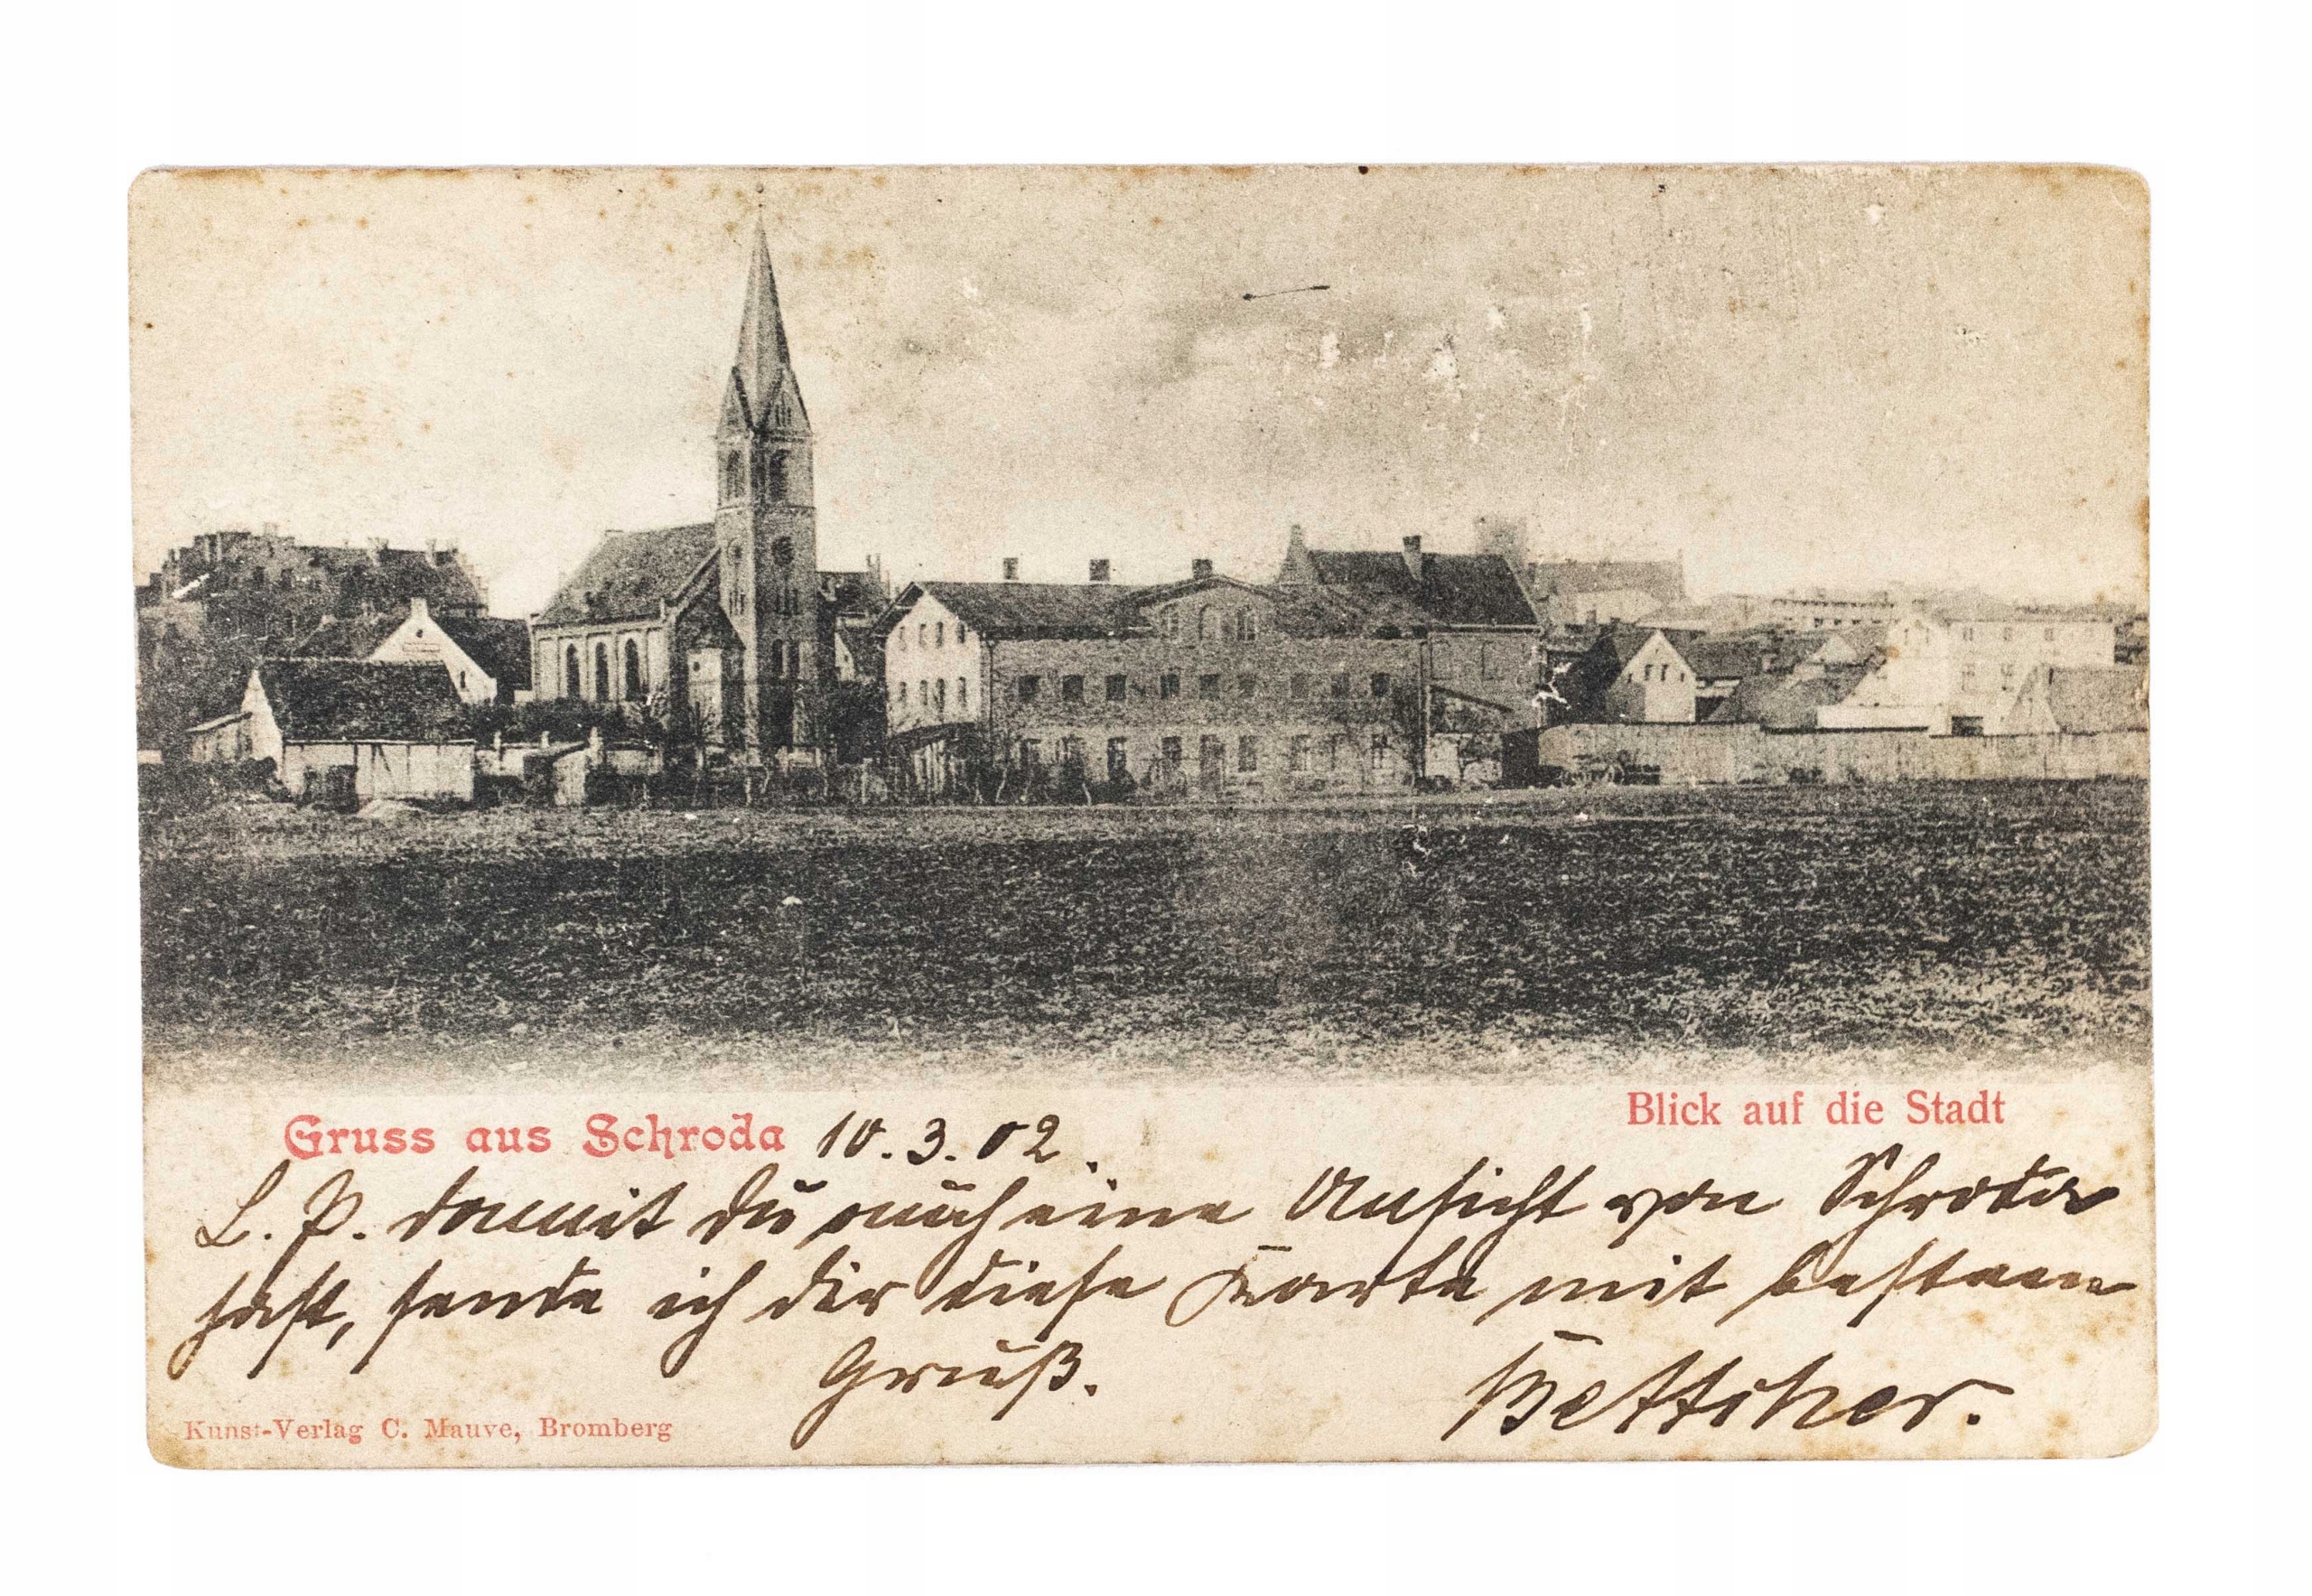 Blick auf die Stadt
Gruss aus Schroda 10. 3. 02.
L. P. damit du auch eine Ansicht von Schroda
hast, sende ich dir diese Karte mit besten
Gruß.
Kunst-Verlag C. Mauve, Bromberg